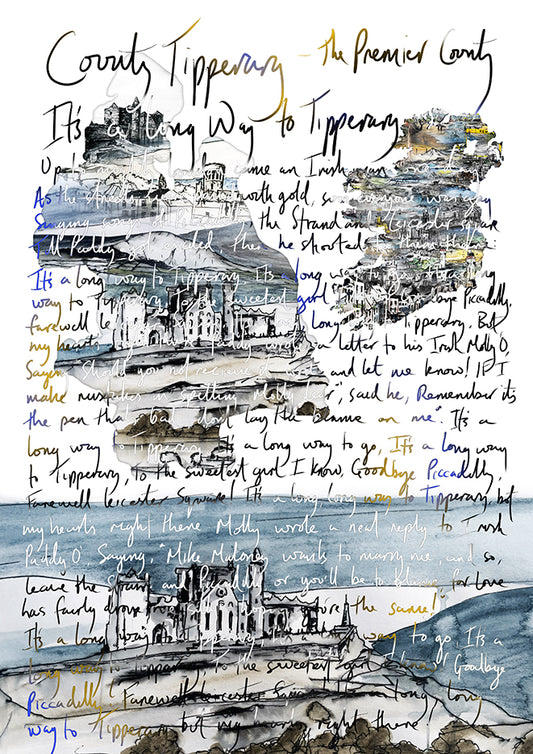 County Tipperary - The Premier County
It's a long Way to Tipperary
Up to came an Irish man
As the streets with gold, so everyone was gay
Singing songs of the Strand and Leicester Square
Till Paddy got excited, then he shouted to them there
It's a long way to Tipperary, It's a long way to go,
way to Tipperary, to the sweetest girl Goodbye Piccadilly,
farewell Le long to Tipperary, But
my hearts a letter to his Irish Molly O,
Saying, should you not receive it, write and let me know! If I
make mistakes in spelling Molly dear", said he, Remember it's
the pen that's bad, don't lay the blame on me". It's a
long way to Tipperary, It's a long way to go, It's a long way
to Tipperary, to the sweetest girl I know, Goodbye Piccadilly,
Farewell Leicester Square! It's a long long way to Tipperary, but
my hearts right there Molly wrote a neat reply to Irish
Paddy O, Saying, "Mike Maloney wants to marry me, and so,
leave the Strand and Piccadilly or you'll be to blame for love
has fairly drove me the same!"
It's a long way to Tipperary, way to go. It's a
long way to Tipperary, to the sweetest girl I know! Goodbye
Piccadilly, Farewell Leicester Square! It's a long, long
way to Tipperary but my hearts right there!